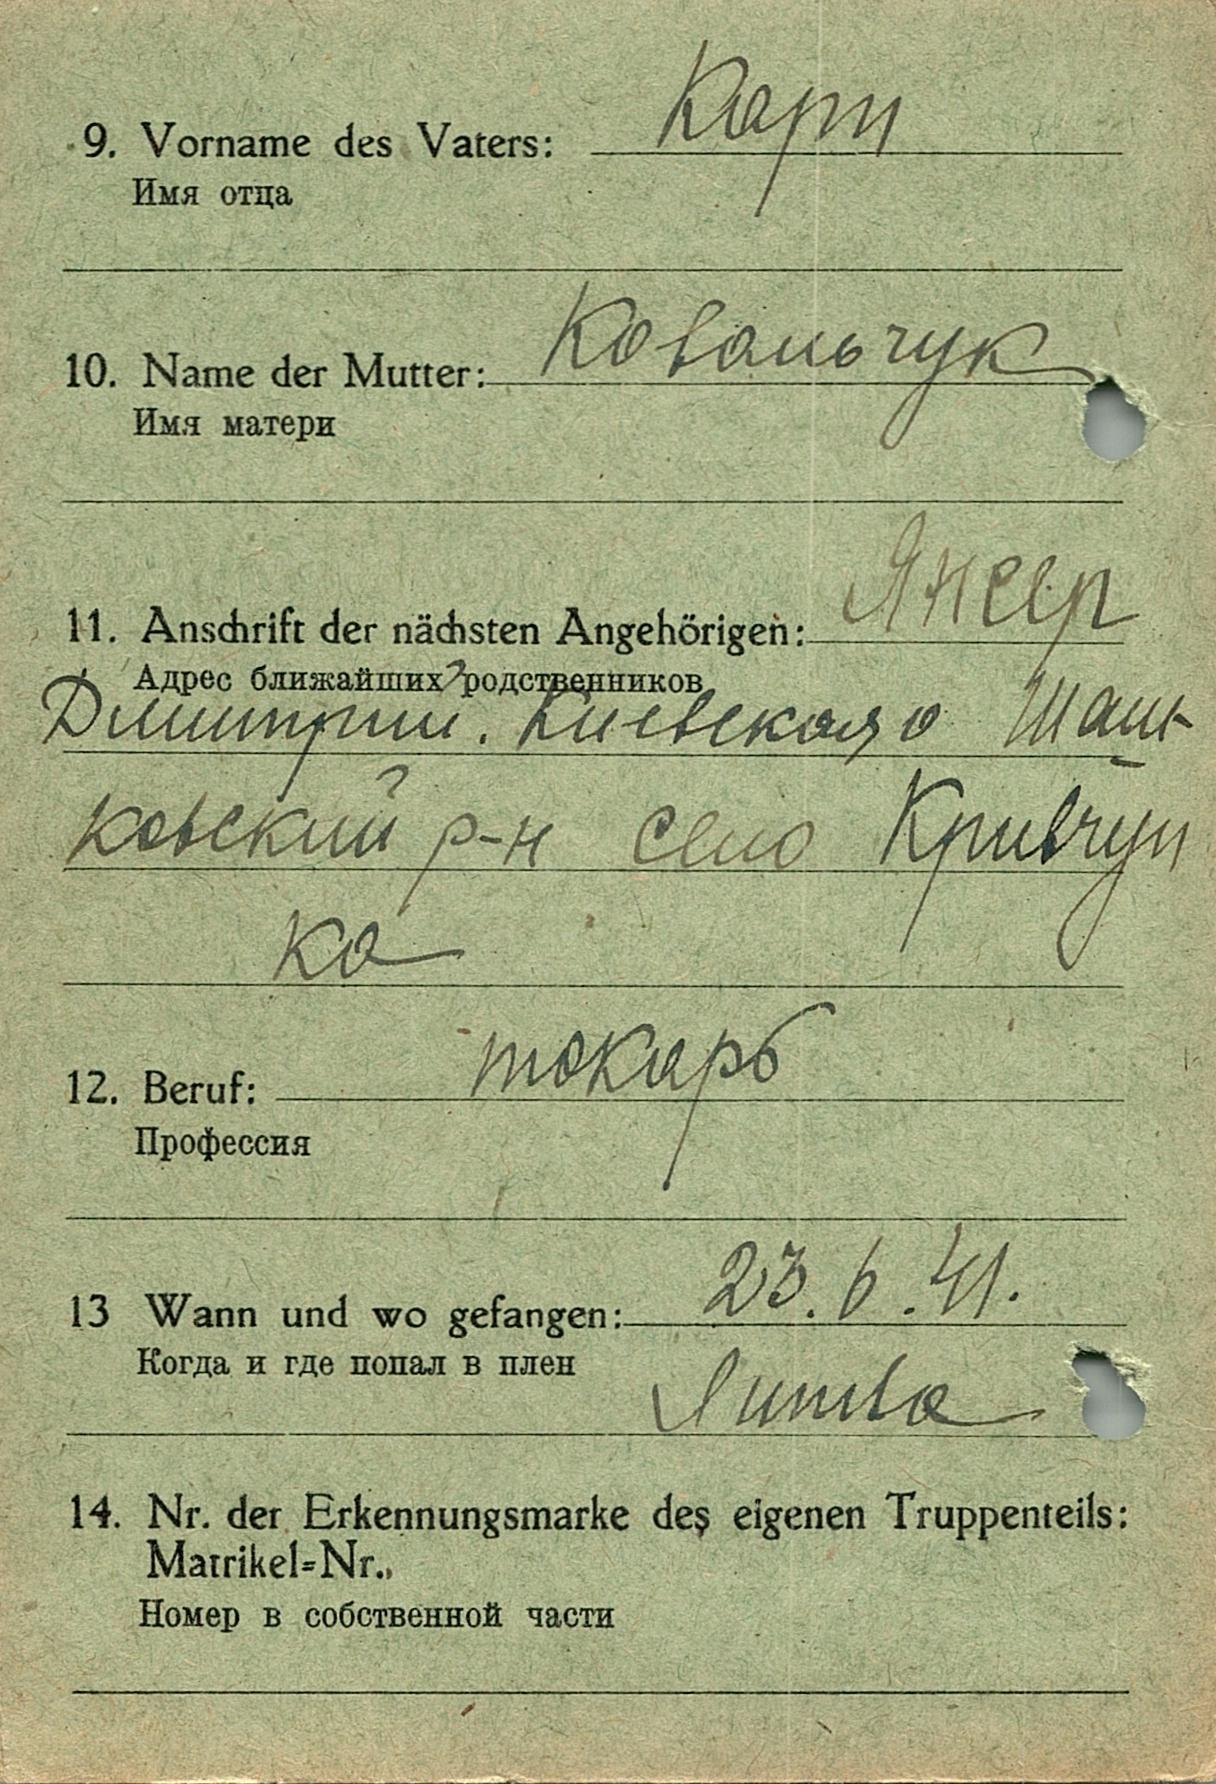 9. Vorname des Vaters: Карп
Имя отца
10. Name der Mutter: Ковальчук
Имя матери
11. Anschrift der nächsten Angehörigen:
Адрес ближайших родственников
Дмитрий. Киевская о
ковский р-н село Кривчун
ка
12. Beruf: токарь
Профессия
13 Wann und wo gefangen: 23.6.41.
Когда и где попал в плен
Литва
14. Nr. der Erkennungsmarke des eigenen Truppenteils:
Matrikel=Nr.,
Номер в собственной части